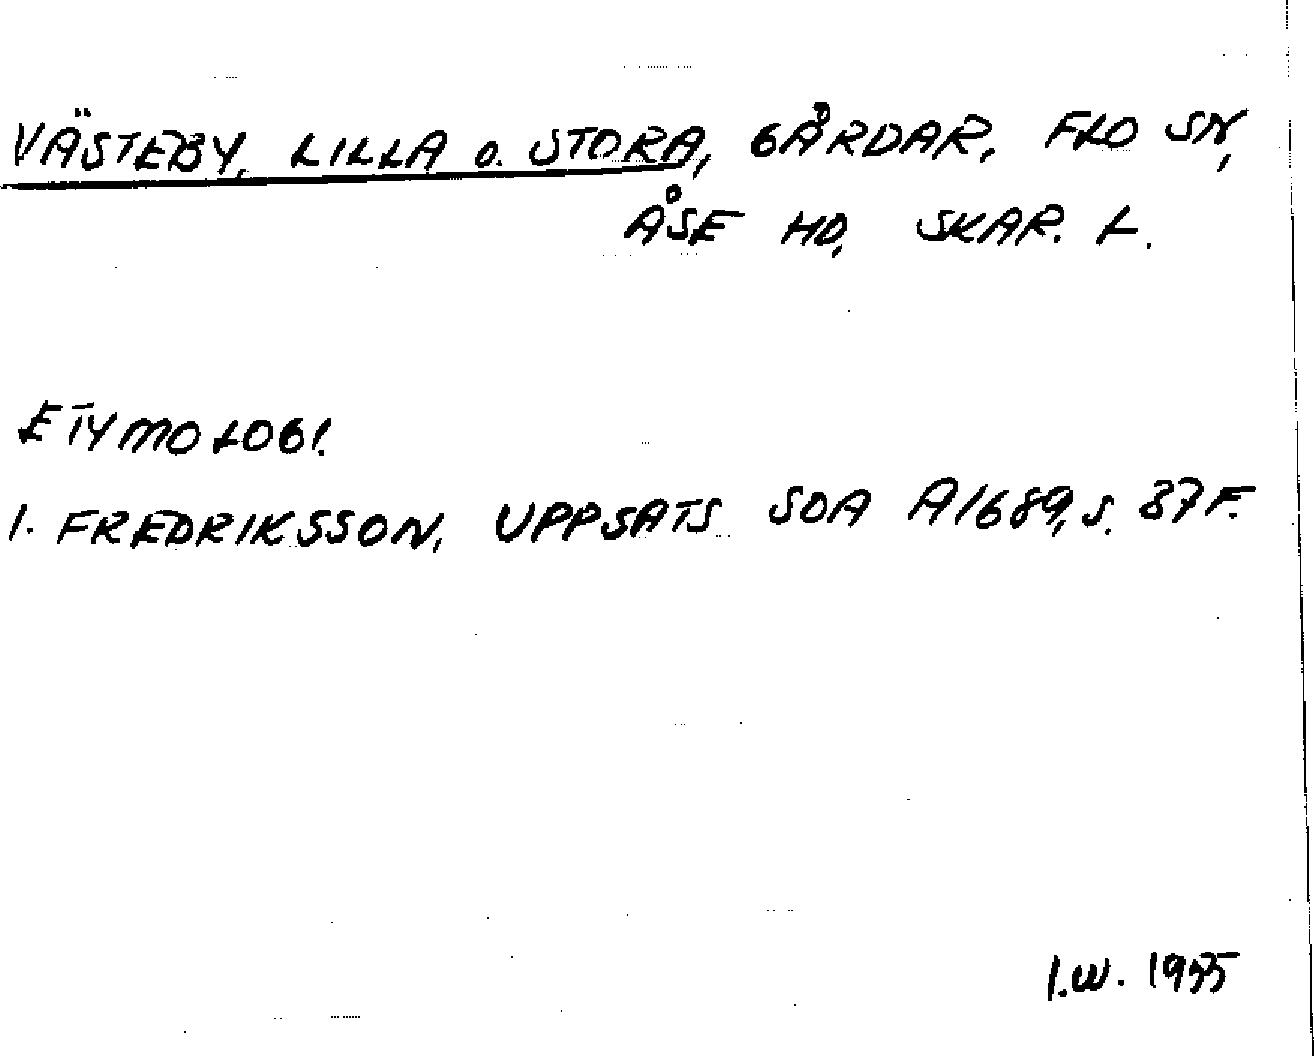 VÄSTEBY, LILLA o. STORA, GÅRDAR, FLO SN,
ÅSE HD, SKAR. L.
ETYMOLOGI.
I. FREDRIKSSON, UPPSATS SOA A1689, S. 87 F.
I.W. 1955